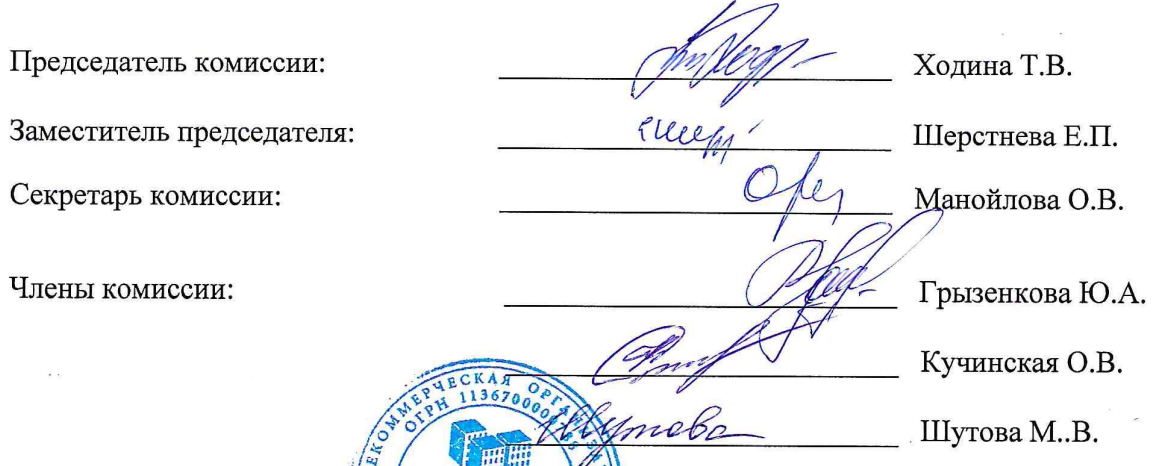 Председатель комиссии: Ходина Т.В.
Заместитель председателя: Шерстнева Е.П.
Секретарь комиссии: Манойлова О.В.
Члены комиссии: Грызенкова Ю.А.
Кучинская О.В.
Шутова М..В.
Шутова
ЕКОММЕРЧЕСКАЯ ОРГАНИЗ
ОГРН 113670000